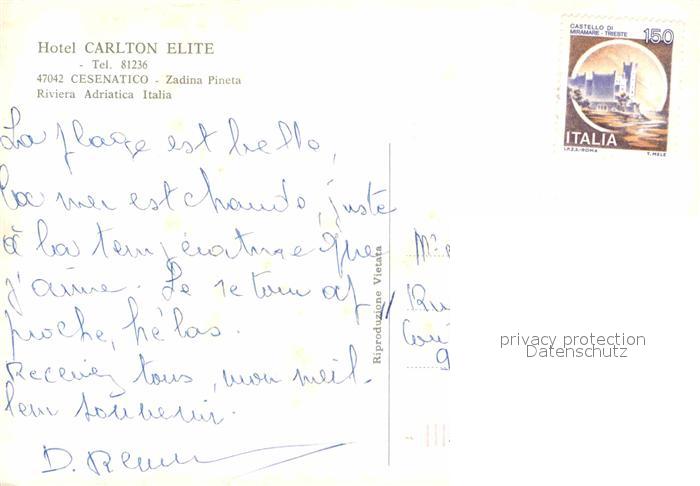 Hotel CARLTON ELITE
- Tel. 81236
47042 CESENATICO - Zadina Pineta
Riviera Adriatica Italia
CASTELLO DI
MIRAMARE - TRIESTE
150
ITALIA
I.P.Z.S. - ROMA
T. MELE
La plage est belle,
la mer est chaude, juste
à la température que
j'aime. Le retour ap
proche, hélas.
Recevez tous, mon meil-
leur souvenir.
D.
Riproduzione Vietata
privacy protection
Datenschutz